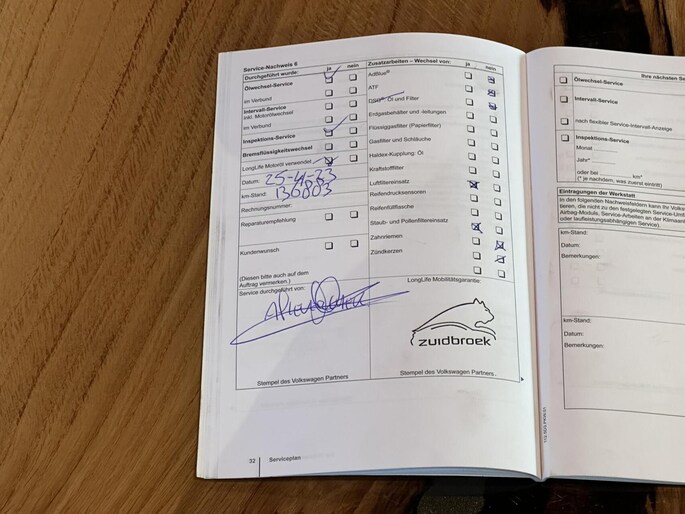 Service-Nachweis 6
Durchgeführt wurde: ja nein
Ölwechsel-Service
im Verbund
Intervall-Service
inkl. Motorölwechsel
im Verbund
Inspektions-Service
Bremsflüssigkeitswechsel
LongLife Motoröl verwendet
Datum: 25-4-23
km-Stand: 136803
Rechnungsnummer:
Reparaturempfehlung
Kundenwunsch
(Diesen bitte auch auf dem
Auftrag vermerken.)
Service durchgeführt von:
Stempel des Volkswagen Partners
Zusatzarbeiten – Wechsel von: ja nein
AdBlue®
ATF
DSG®: Öl und Filter
Erdgasbehälter und -leitungen
Flüssiggasfilter (Papierfilter)
Gasfilter und Schläuche
Haldex-Kupplung: Öl
Kraftstofffilter
Luftfiltereinsatz
Reifendrucksensoren
Reifenfüllflasche
Staub- und Pollenfiltereinsatz
Zahnriemen
Zündkerzen
LongLife Mobilitätsgarantie:
zuidbroek
Stempel des Volkswagen Partners
32 Serviceplan
Ihre nächsten Se
Ölwechsel-Service
Intervall-Service
nach flexibler Service-Intervall-Anzeige
Inspektions-Service
Monat
Jahr*
oder bei km*
(* je nachdem, was zuerst eintritt)
Eintragungen der Werkstatt
In den folgenden Nachweisfeldern kann Ihr Volks
tieren, die nicht zu den festgelegten Service-Umf
Airbag-Module, Service-Arbeiten an der Klimaanl
oder laufleistungsabhängigen Service).
km-Stand:
Datum:
Bemerkungen:
km-Stand:
Datum:
Bemerkungen: